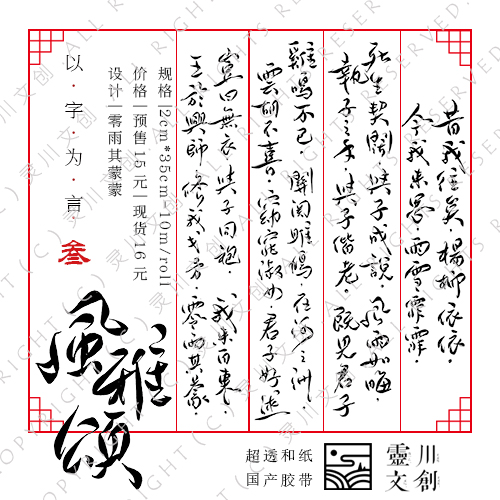 昔我往矣·楊柳依依·
今我来思·雨雪霏霏·
死生契闊·與子成說·風雨如晦·
執子之手·與子偕老·既見君子
雞鳴不已·關關雎鳩·在河之洲·
雲胡不喜·窈窕淑女·君子好逑
豈曰無衣·與子同袍·我来自東·
王於興師·修我戈矛·零雨其蒙
规格|2cm*35cm-10m/roll
价格|预售15元|现货16元
设计|零雨其蒙蒙
以·字·为·言
叁
風雅頌
超透和纸
国产胶带
靈川
文創
COPYRIGHT (C) 灵川文创 ALL RIGHTS RESERVED.